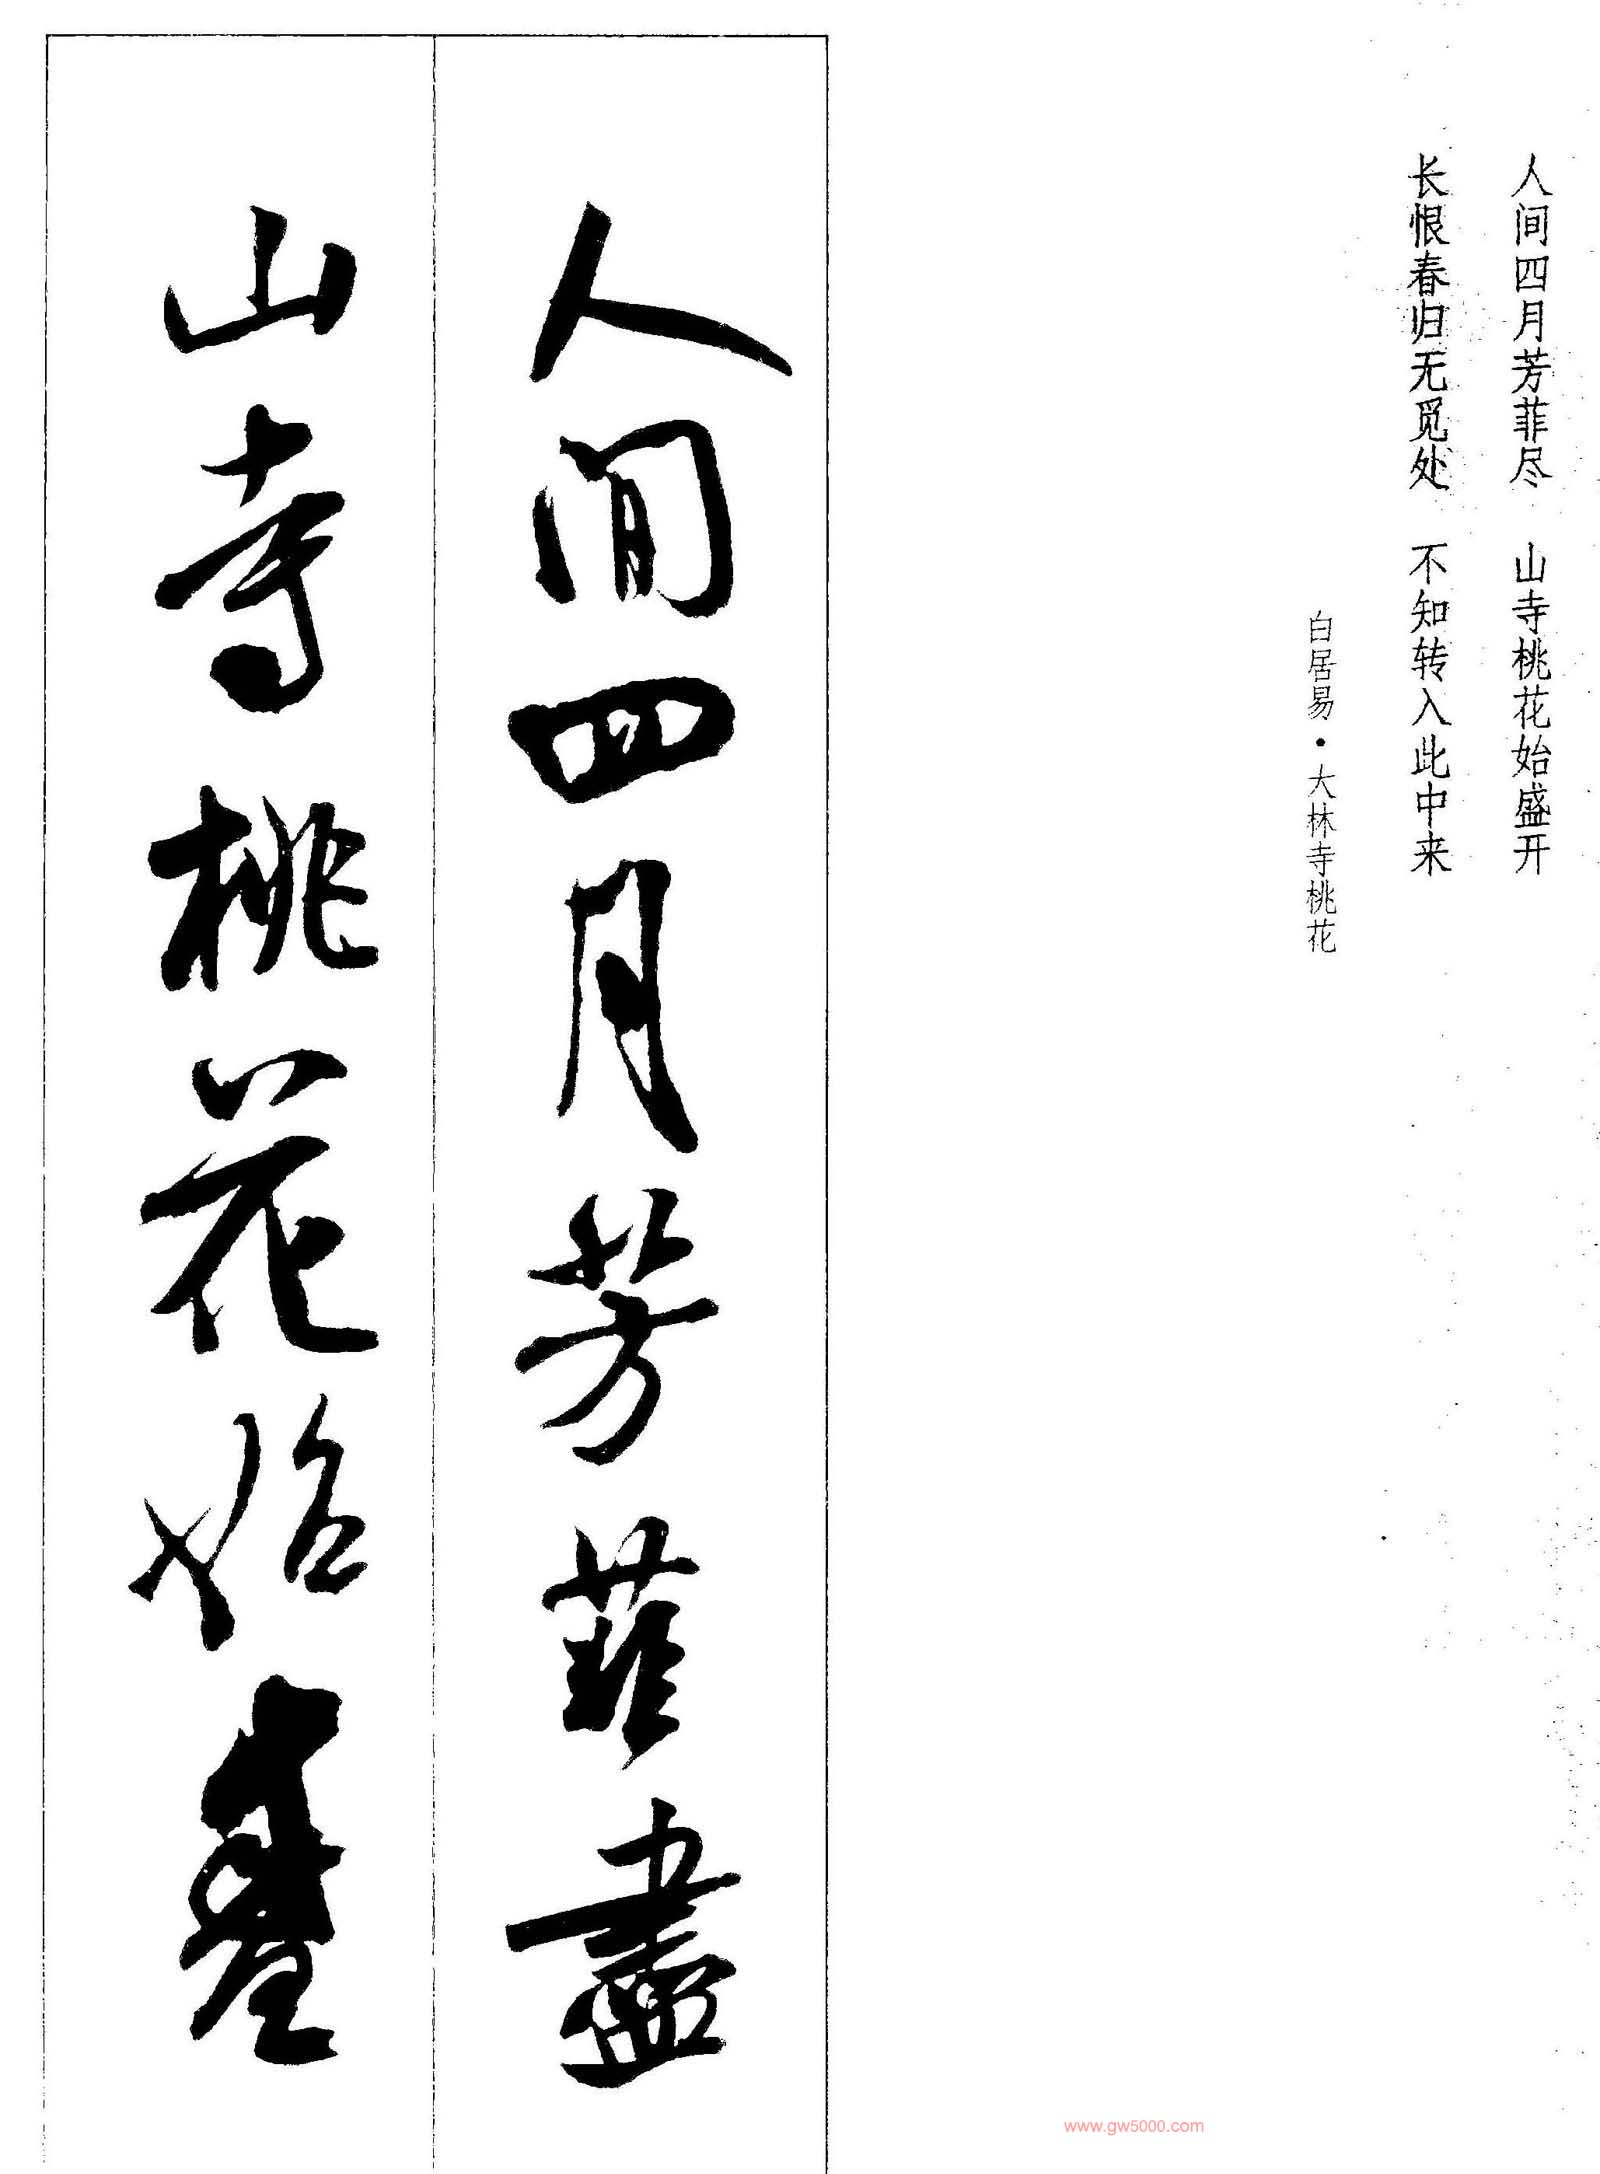 人间四月芳菲尽 山寺桃花始盛开
长恨春归无觅处 不知转入此中来
白居易·大林寺桃花
人間四月芳菲盡
山寺桃花始盛
www.gw5000.com